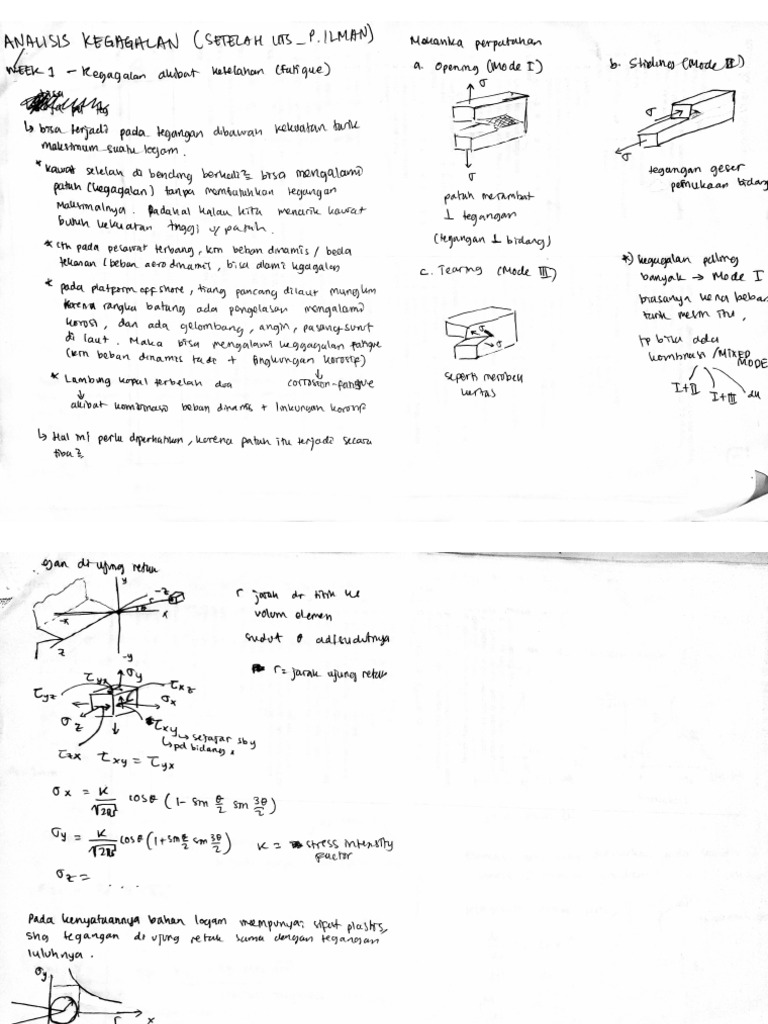 ANALISIS KEGAGALAN (SETELAH UTS _ P. ILMAN)
WEEK 1 - Kegagalan akibat kelelahan (fatigue)
↳ bisa terjadi pada tegangan dibawah kekuatan tarik
maksimum suatu logam.
* kawat setelah di bending berkali2 bisa mengalami
patah (kegagalan) tanpa membutuhkan tegangan
maksimalnya. Padahal kalau kita menarik kawat
butuh kekuatan tinggi u/ patah.
* cth pada pesawat terbang, krn beban dinamis / beda
tekanan (beban aerodinamis, bisa alami kegagalan
* pada platform offshore, tiang pancang dilaut mungkin
karena rangka batang ada pengelasan mengalami
korosi, dan ada gelombang, angin, pasang surut
di laut. Maka bisa mengalami kegagalan fatigue
(krn beban dinamis tade + lingkungan korosif)
↓
corrosion-fatigue
* Lambung kapal terbelah dua
↓
akibat kombinasi beban dinamis + linkungan korosif
↳ Hal ini perlu diperhatikan, karena patah itu terjadi secara
tiba2
Mekanika perpatahan
a. Opening (Mode I)
σ
σ
patah merambat
⊥ tegangan
(tegangan ⊥ bidang)
b. Sliding (Mode II)
σ
σ
tegangan geser
permukaan bidang
c. Tearing (Mode III)
σ
σ
seperti merobek
kertas
*) kegagalan paling
banyak → Mode I
biasanya kena beban
tarik mesin itu,
tp bila ada
kombinasi /MIXED
MODE
I+II I+III dll
egan di ujung retak
y
-z
r
θ
x
-x
z
-y
r jarak dr titik ke
volum elemen
sudut θ adl sudutnya
r = jarak ujung retak
τyx σy τxz
τyz σx
σz τxy ↳ sejajar sby
↳ pd bidang x
τzx τxy = τyx
σx = K/√2πr cosθ (1 - sin θ/2 sin 3θ/2)
σy = K/√2πr cosθ (1 + sin θ/2 sin 3θ/2) K = stress intensity
factor
σz = ...
Pada kenyataannya bahan logam mempunyai sifat plastis,
shg tegangan di ujung retak sama dengan tegangan
luluhnya.
σy
r x